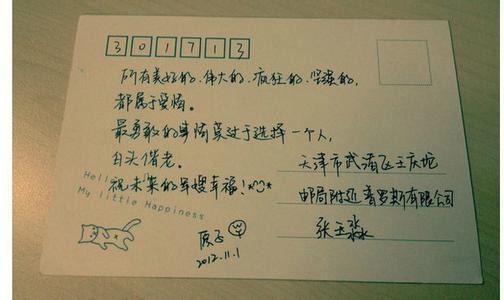 301713
所有美好的、伟大的、疯狂的、坚毅的,
都属于爱情。
最勇敢的事情莫过于选择一个人,
白头偕老。
祝未来的军嫂幸福!
Hello
My little Happiness
天津市武清区王庆坨
邮局附近普罗斯有限公司
张玉淼
原子
2012.11.1